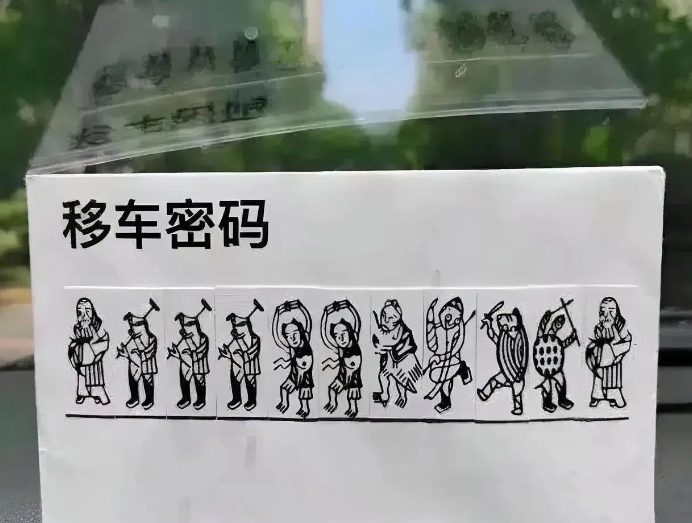 移车密码